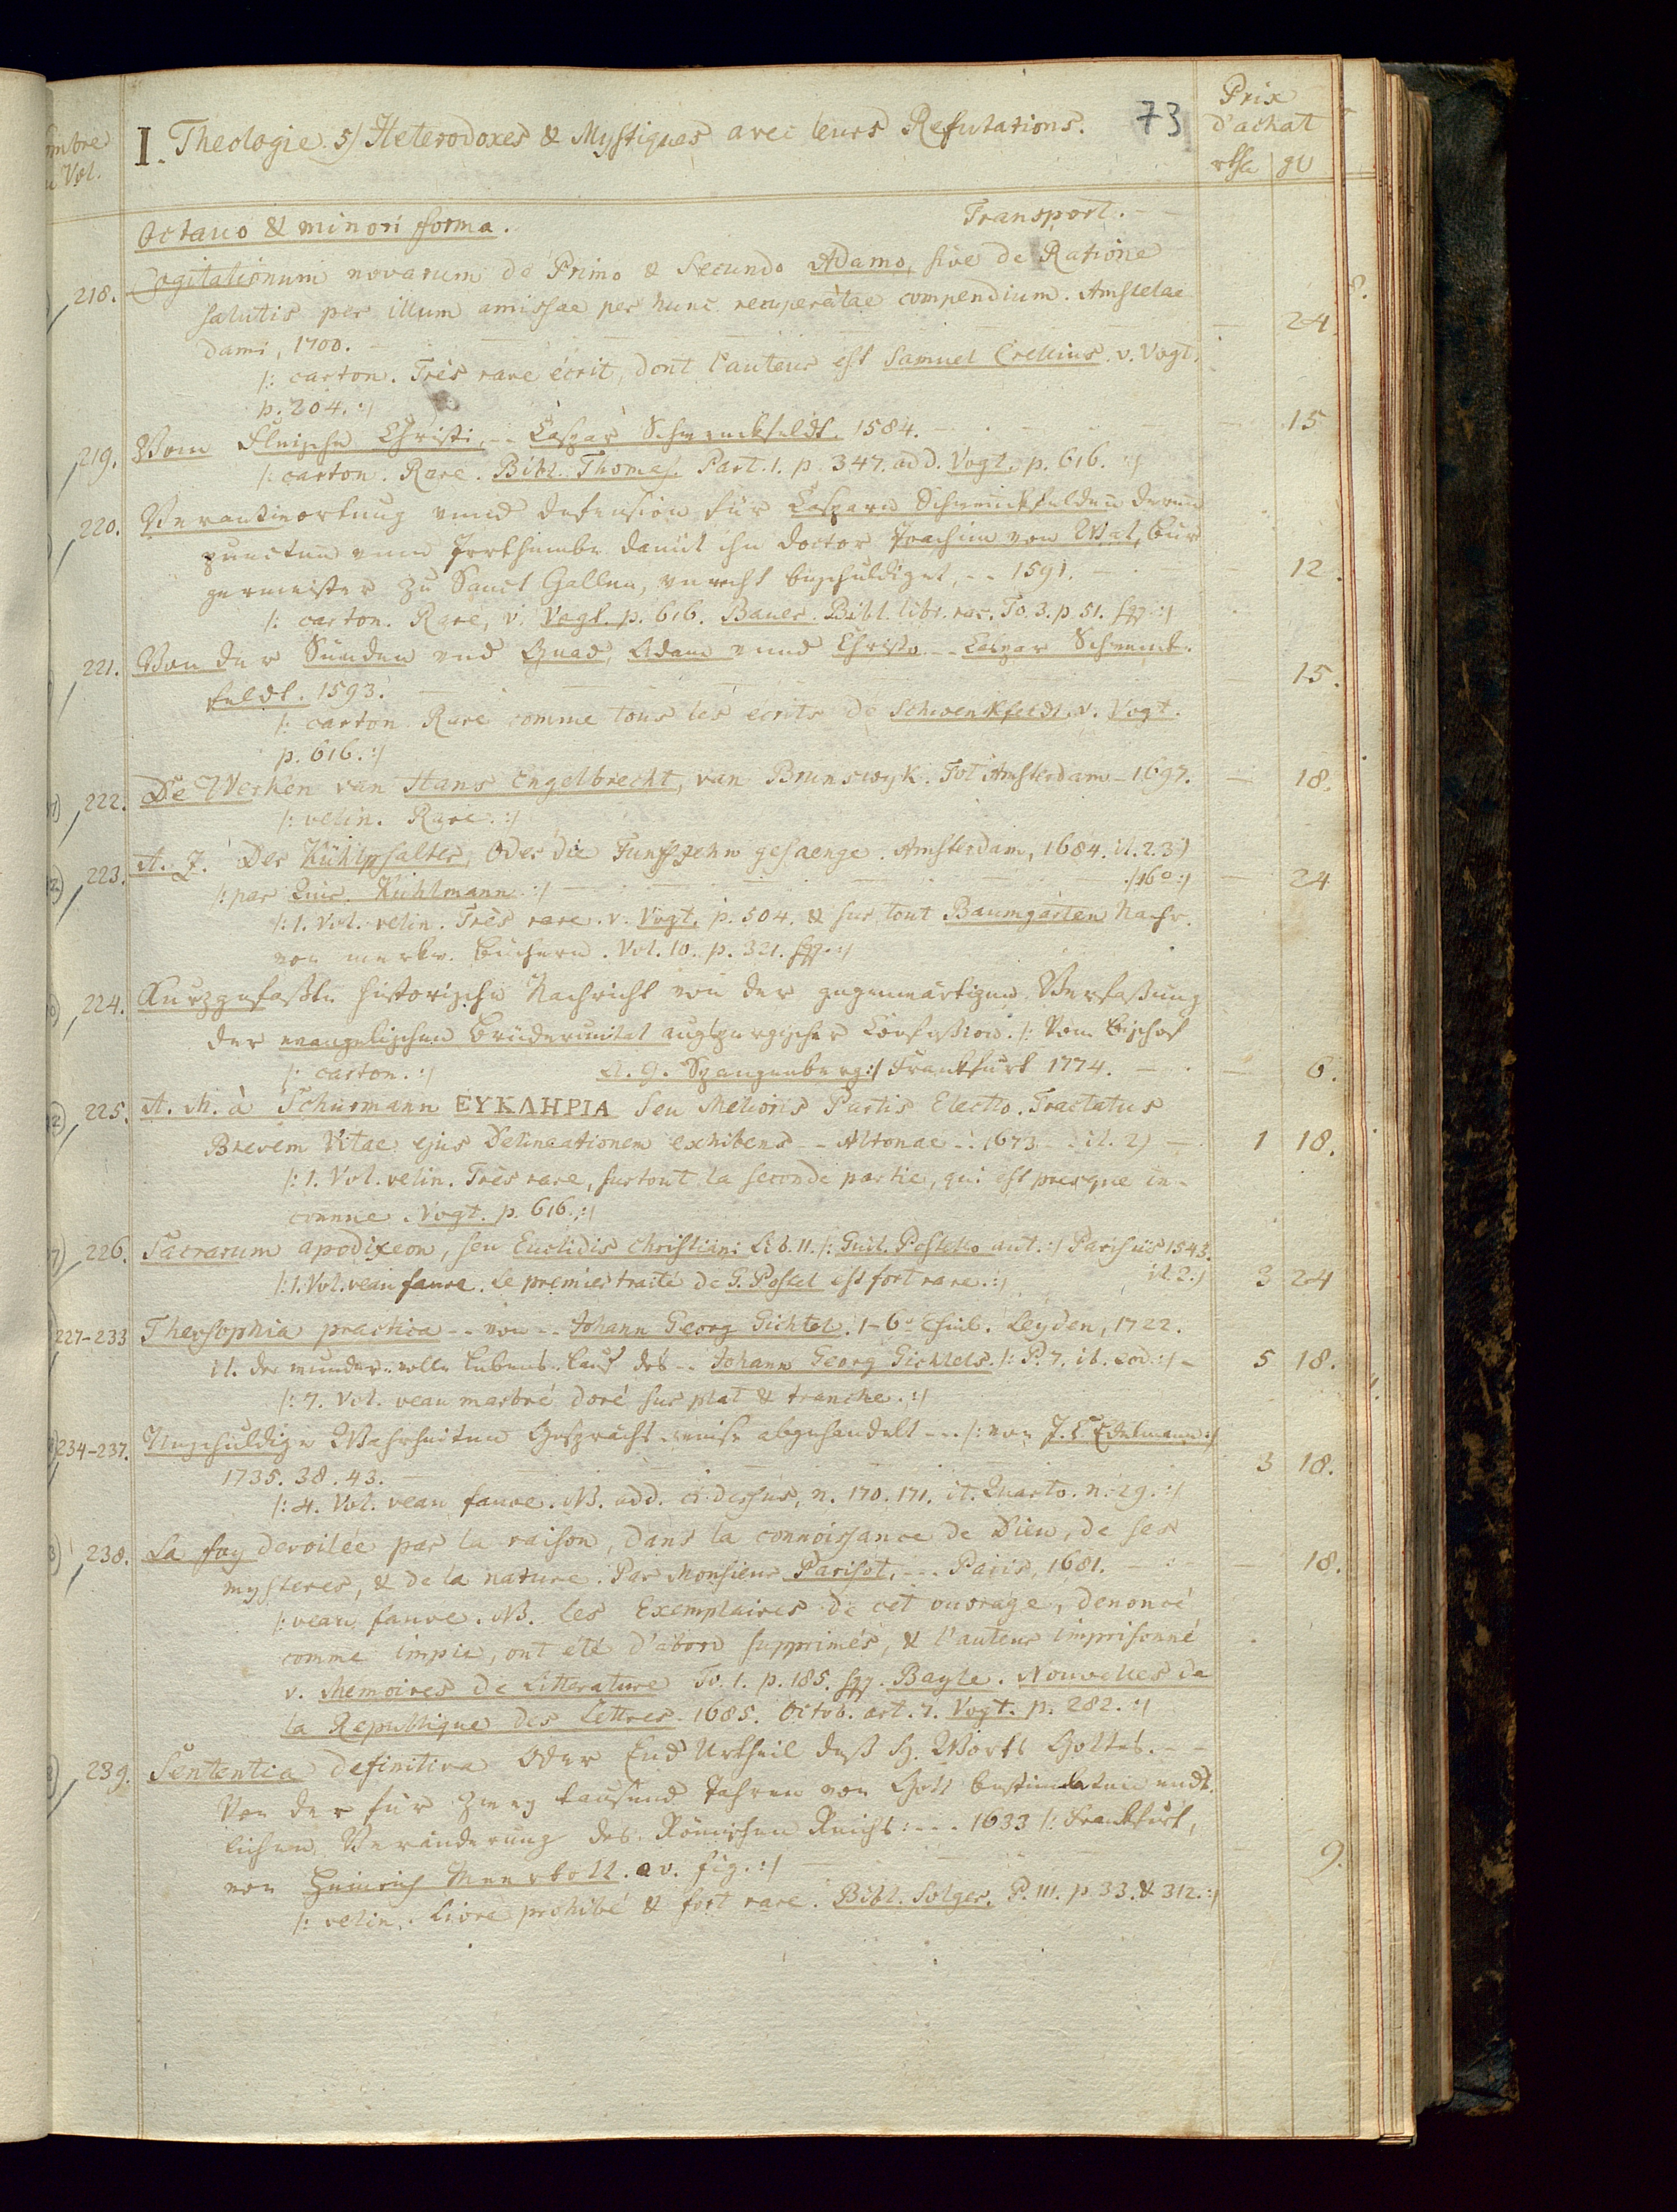 I. Theologie. 5/ Heterodoxes & Mystiques avec leurs Refutations. 73
Prix
d'achat
Vol.
Octavo & minori forma. Transport.
218. Cogitationum novarum de Primo & Secundo Adamo, sive de Ratione
salutis per illum amissae per hunc recuperatae compendium. Amstelae
dami, 1700. — 24.
/: carton. Très rare écrit, dont l'auteur est Samuel Crellius. v. Vogt.
p. 204. :/
219. Vom Fleische Christi, -- Caspar Schwenckfeldt. 1584. — 15
/: carton. Rare. Bibl. Thomas. Part. 1. p. 347. add. Vogt. p. 616. :/
220. Verantwortung unnd defension für Casparn Schwenckfelden derenn
puncten unnd Irrthumbe damit ihn doctor Joachim von Wat, Bur
germeister zu Sanct Gallen, unrecht beschuldiget, -- 1591. — 12.
/: carton. Rare, v. Vogt. p. 616. Bauer. Bibl. libr. rar. To. 3. p. 51. sqq. :/
221. Von der Sünden und Gnad, Adam unnd Christo -- Caspar Schwenck.
feldt. 1593. — 15.
/: carton Rare comme tous les ecrits de Schwenkfeldt. v. Vogt.
p. 616. :/
222. De Werken van Hans Engelbrecht, van Brunswyk. Tot Amsterdam — 1697. — 18.
/: velin. Rare. :/
223. A. Z. Der Kühlpsalter, Oder die Funffzehn gesaenge. Amsterdam, 1684. it. 2. 3)
/: par Quir. Kuhlmann :/ /16º :/ — 24
/: 1. Vol. velin. Très rare. v. Vogt. p. 504. & sur tout Baumgarten Nachr.
von merkw. Büchern. Vol. 10. p. 321. sqq. :/
224. Kurzgefaßte historische Nachricht von der gegenwärtigen Verfaßung
der evangelischen Brüderunität augspurgischer Confeßion. /: Vom Bischof
/: carton. :/ A. G. Spangenberg :/ Frankfurt 1774. — 6.
225. A. M. à Schurmann ΕΥΚΛΗΡΙΑ seu Melioris Partis Electio. Tractatus
Brevem Vitae ejus Delineationem exhibens -- Altonae -: 1673 -. it. 2) — 1 18.
/: 1. Vol. velin. Très rare, surtout la seconde partie, qui est presque in-
connue. Vogt. p. 616. :/
226. Sacrarum apodixeon, seu Euclidis christiani Lib. 11. /: Guil. Postello aut. :/ Parisiis 1543.
/: 1. Vol. veau fauve. Le premier traité de G. Postel est fort rare. :/ it. 2. :/ 3 24
227-233 Theosophia practica -- von -- Johann Georg Gichtel. 1-6. Theil. Leyden, 1722.
it. der wunder-volle Lebens-Lauf des -- Johann Georg Gichtels. /: P. 7. it. eod. :/ - 5 18.
/: 7. Vol. veau marbré doré sur plat & tranche. :/
234-237. Unschuldige Wahrheiten Gesprächs-weise abgehandelt --- /: von J. C. Edelmann :/
1735. 38. 43. — 3 18.
/: 4. Vol. veau fauve. NB. add. ci-dessus, n. 170. 171. it. Quarto. n. 29. :/
238. La foy devoilée par la raison, dans la connoissance de Dieu, de ses
mysteres, & de la nature. Par Monsieur Parisot. --- Paris, 1681. — 18.
/: veau fauve. NB. les Exemplaires de cet ouvrage, denoncé
comme impie, ont été d'abord supprimés, & l'auteur imprisonné
v. Memoires de Litterature To. 1. p. 185. sqq. Bayle. Nouvelles de
la Republique des Lettres. 1685. Octob. art. 7. Vogt. p. 282. :/
239. Sententia definitiva Oder End Urtheil deß H. Worts Gottes. --
Von der für zwey tausend Jahren von Gott bestimbten endt
lichen Veränderung des Römischen Reichs: --- 1633 /: Frankfurt,
von Heinrich Meerbott. av. fig. :/ — 9.
/: velin. Livre prohibé & fort rare. Bibl. Solger. P. III. p. 33. & 312. :/